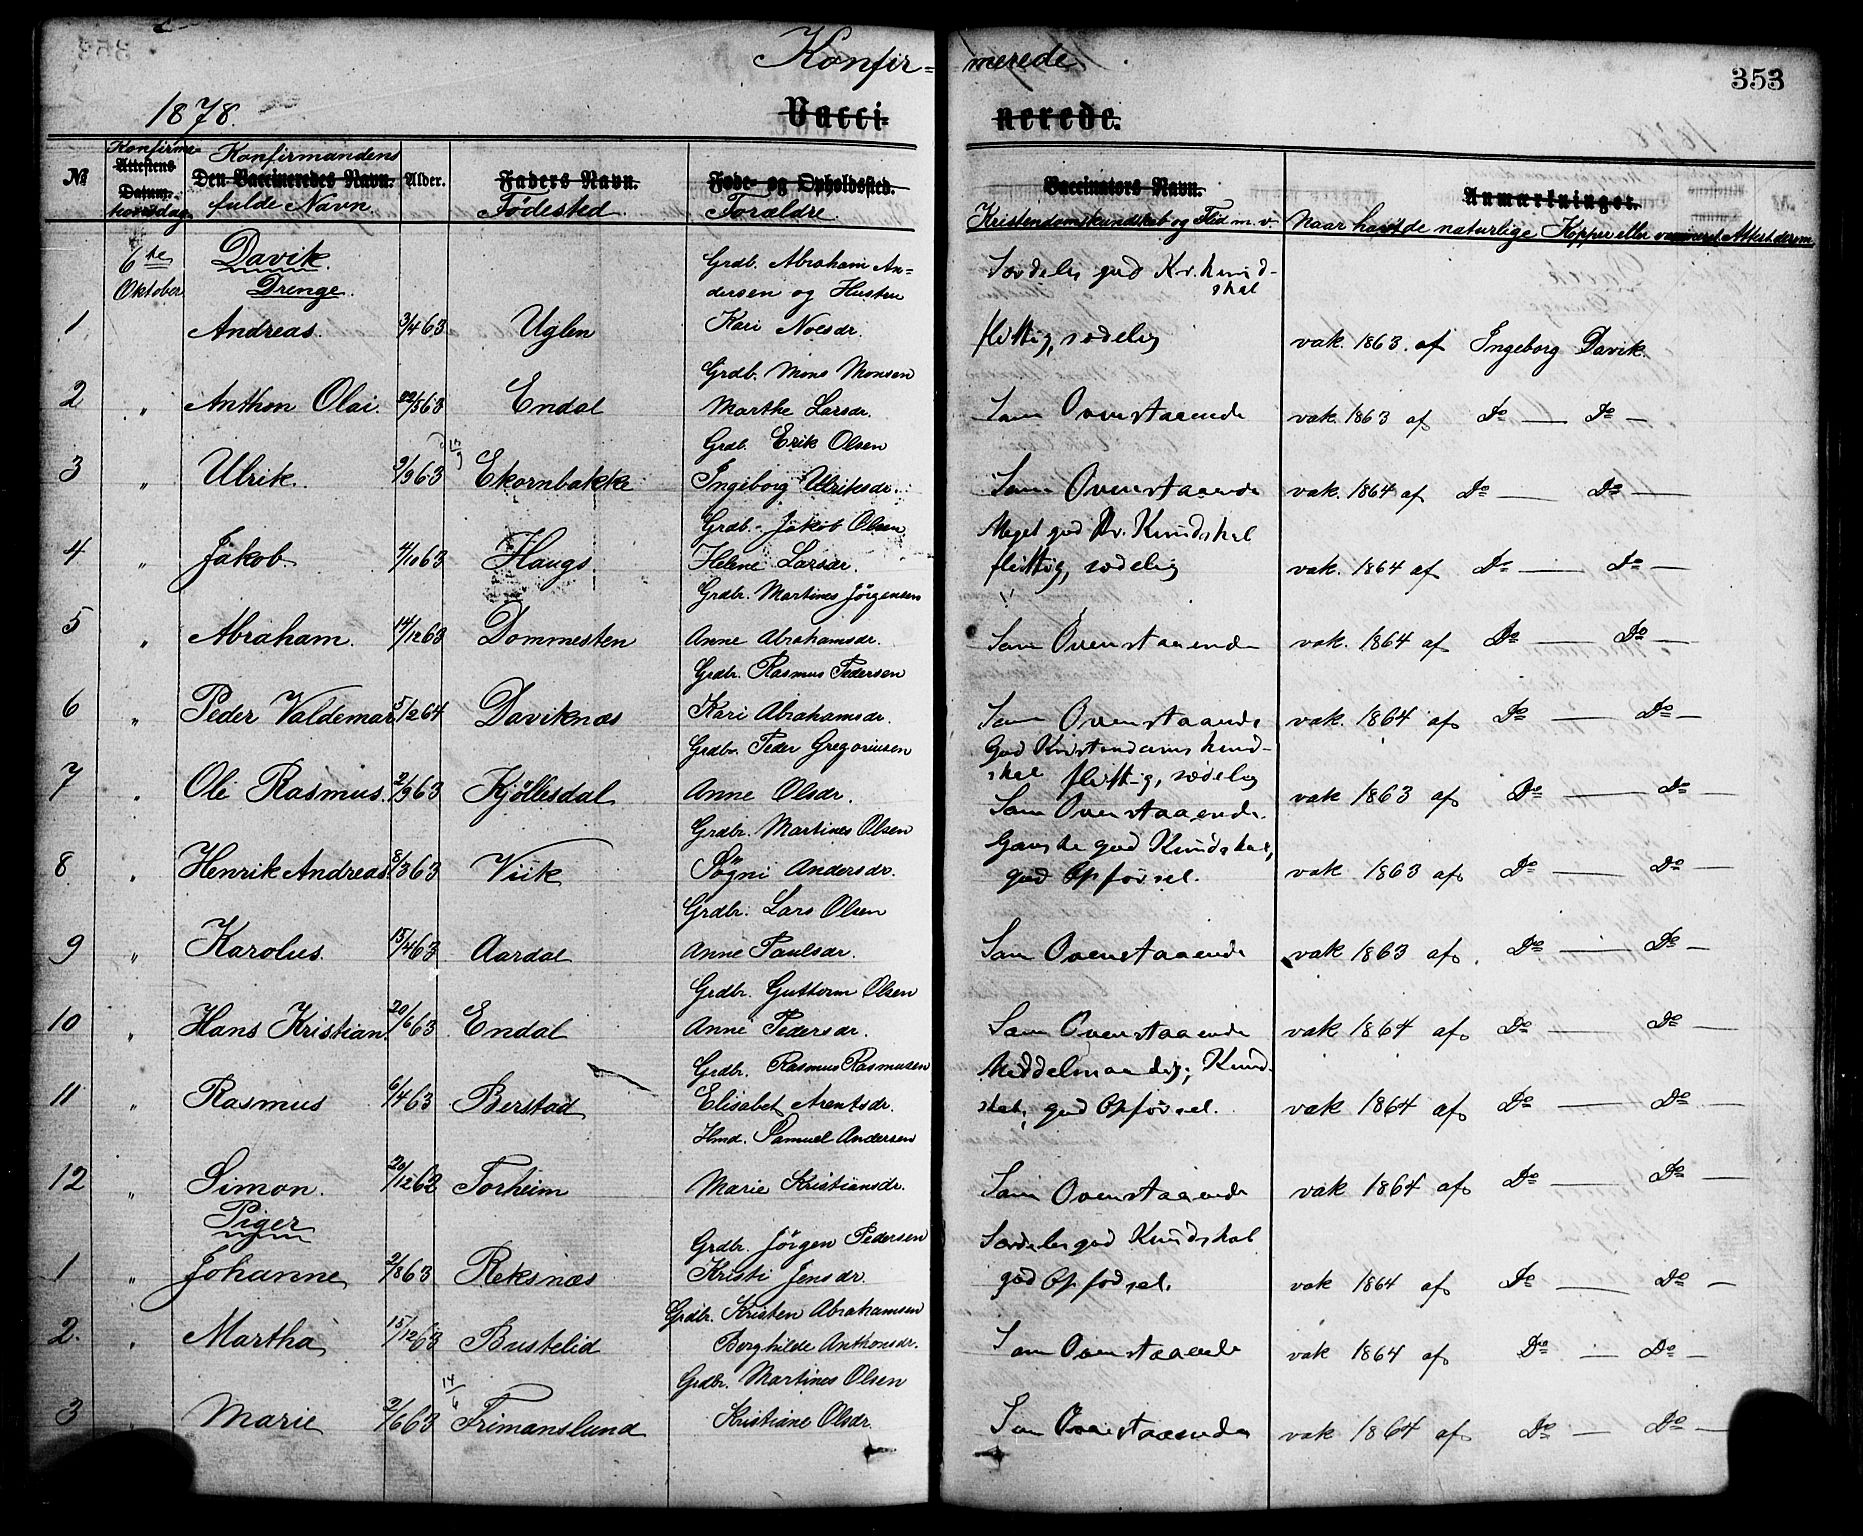 Konfir= merede
353
1878.
Vacci- nerede.
№ Konfirma- Attestens Datum. Konfirmandens Den Vaccineredes Navn. fulde Navn. Alder. Faders Navn. Fødested. Føde- og Opholdssted. Forældre.
Vaccinators Navn. Kristendomskundskab og Flid m. v. Anmærkninger. Naar havt de naturlige Kopper eller vaccineret Attest derom
6te Oktober Davik. Drenge.
Grdb. Abraham An-
dersen og Hustru
Særdeles god Kr. kund-
skab
1 Andreas. 3/4 63 Uglen Kari Nilsdr. flittig, sædelig vak. 1863. af Ingeborg Davik.
Grdb. Mons Monsen
2 " Anthon Olai. 22/5 63 Endal Marthe Larsdr. Som Ovenstaaende vak. 1863 af Do — Do —
Grdb. Erik Olsen
3 " Ulrik. 2/9 63 13/9 Ekornbakke Ingeborg Ulriksdr. Som Ovenstaaende vak. 1864 af Do — Do —
Grdb. Jakob Olsen Meget god Kr. Kundskab
4 " Jakob 4/10 63 Haugs. Helene Larsdr. flittig, sædelig vak. 1864 af Do — Do —
Grdbr. Martines Jörgensen
5 " Abraham. 14/12 63 Dommesten Anne Abrahamsdr. Som Ovenstaaende vak. 1864 af Do — Do —
Grdbr. Rasmus Pedersen
6 " Peder Valdemar 5/12 64 Daviknæs Kari Abrahamsdr. Som Ovenstaaende vak. 1864 af Do — Do —
Grdbr. Peder Gregoriusen God Kristendoms kund-
skab flittig, sædelig
7 " Ole Rasmus. 2/9 63 Kjöllesdal Anne Olsdr. Som Ovenstaaende. vak 1863 af Do — Do —
Grdbr. Martines Olsen Ganske god Kundskab,
8 " Henrik Andreas 8/3 63 Viik Sögni Andersdr. god Opförsel. vak. 1863 af Do — Do —
Grdbr. Lars Olsen
9 " Karolus. 15/4 63 Aardal Anne Paulsdr. Som Ovenstaaende vak 1863 af. Do — Do —
Grdbr. Guttorm Olsen
10 " Hans Kristian. 20/6 63 Endal Anne Pedersdr. Som Ovenstaaende vak 1864 af Do — Do —
Grdbr. Rasmus Rasmusen Middelmaadig, Kund-
11 " Rasmus 6/4 63 Berstad Elisabet Arentsdr. skab, god Opförsel. vak 1864 af Do — Do —
Hmd. Samuel Andersen
12 " Simon. 20/12 62 Torheim Marie Kristiansdr. Som Ovenstaaende vak 1864 af Do — Do —
Piger
Grdbr. Jörgen Pedersen Særdeles god Kundskab
1 " Johanne 2/8 63 Reksnæs Kristi Jensdr. god Opförsel. vak 1864 af Do — Do —
Grdbr. Kristen Abrahamsen
2. " Martha 15/12 63 Bustelid Borghilde Anthonsdr. Som Ovenstaaende vak 1864 af Do — Do —
Grdbr. Martines Olsen
3 " Marie 2/6 63 14/6 Frimanslund Kristiane Olsdr Som Ovenstaaende vak 1864 af Do — Do —